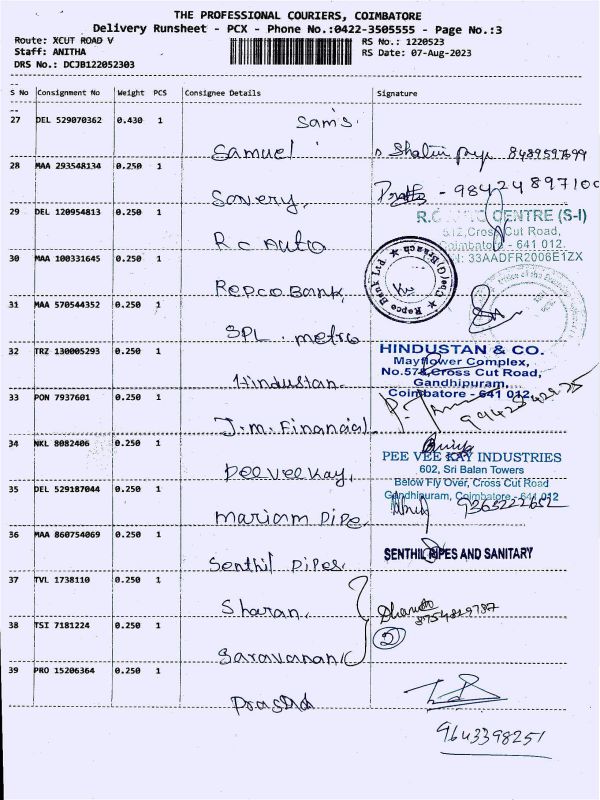 THE PROFESSIONAL COURIERS, COIMBATORE
Delivery Runsheet - PCX - Phone No.:0422-3505555 - Page No.:3
Route: XCUT ROAD V RS No.: 1220523
Staff: ANITHA RS Date: 07-Aug-2023
DRS No.: DCJB122052303
S No Consignment No Weight PCS Consignee Details Signature
27 DEL 529070362 0.430 1 Sam's
Samuel 8489597699
28 MAA 293548134 0.250 1
Sovery, - 9842489710
29 DEL 120954813 0.250 1 CENTRE (S-I)
512, Cross Cut Road,
RC Auto Coimbatore - 641 012.
30 MAA 100331645 0.250 1 33AADFR2006E1ZX
Repco Bank Ltd
Repco Bank,
31 MAA 570544352 0.250 1
SPL. metro
32 TRZ 130005293 0.250 1 HINDUSTAN & CO.
Mayflower Complex,
No.578, Cross Cut Road,
Hindustan. Gandhipuram,
33 PON 7937601 0.250 1 Coimbatore - 641 012.
J.M. Financial
34 NKL 8082406 0.250 1
PEE VEE KAY INDUSTRIES
602, Sri Balan Towers
Peeveekay, Below Fly Over, Cross Cut Road
35 DEL 529187044 0.250 1 Gandhipuram, Coimbatore - 641 012
9365222652
Mariam Pipe,
36 MAA 860754069 0.250 1
SENTHIL PIPES AND SANITARY
Senthil Pipes.
37 TVL 1738110 0.250 1
Sharan, 8754819787
38 TSI 7181224 0.250 1 2
Saravanan
39 PRO 15206364 0.250 1
Prasad
9643398251